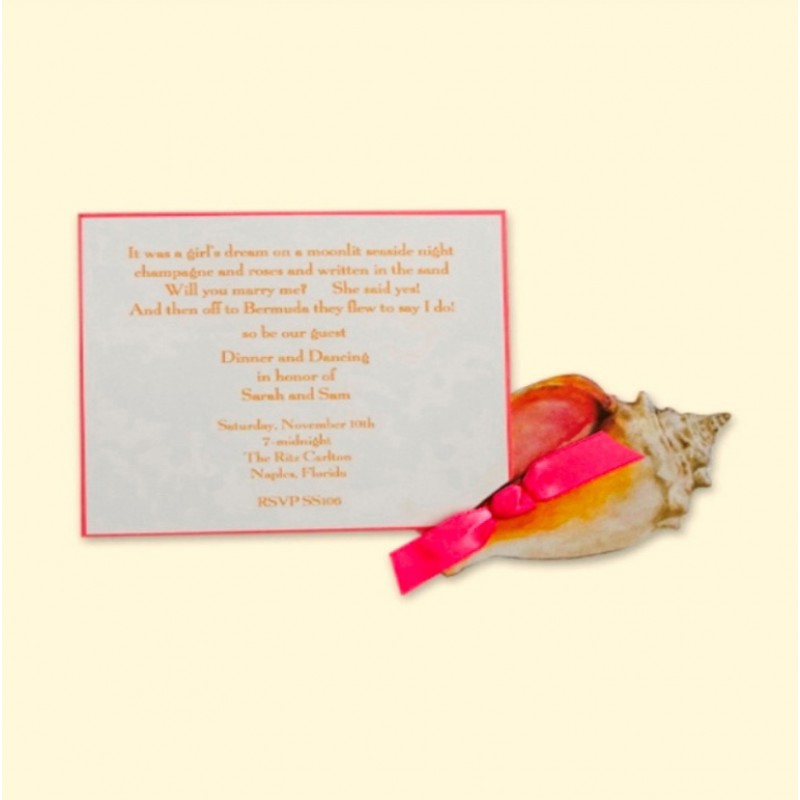 It was a girl's dream on a moonlit seaside night
champagne and roses and written in the sand
Will you marry me? She said yes!
And then off to Bermuda they flew to say I do!
so be our guest
Dinner and Dancing
in honor of
Sarah and Sam
Saturday, November 19th
7-midnight
The Ritz Carlton
Naples, Florida
RSVP SS106